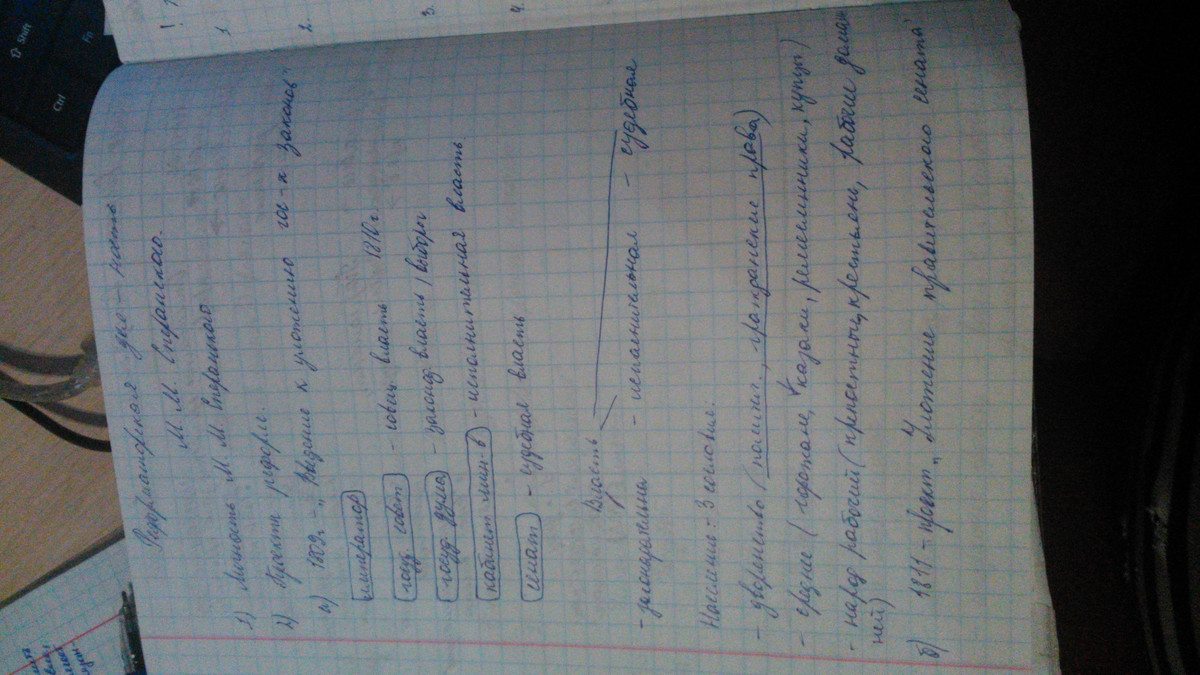 Реформаторская дея-ность
М. М. Сперанского.
1) Личность М. М. Сперанского
2) Проекты реформ.
а) 1809г. „Введение к уложению гос-х законов"
император
госуд. совет - совещ. власть 1810г.
госуд. дума - законод. власть / выборы
кабинет мин-в - исполнительная власть
сенат - судебная власть
Власть
- законодательна - исполнительная - судебная
Население - 3 сословия:
- дворянство (политич., гражданские права)
- среднее (горожане, казаки, ремесленники, купцы)
- народ рабочий (крепостных крестьян, рабочие домаш
ней)
б) 1811 - проект „Уложение правительского сената"
1.
2.
3.
4.
Shift
Fn
Ctrl